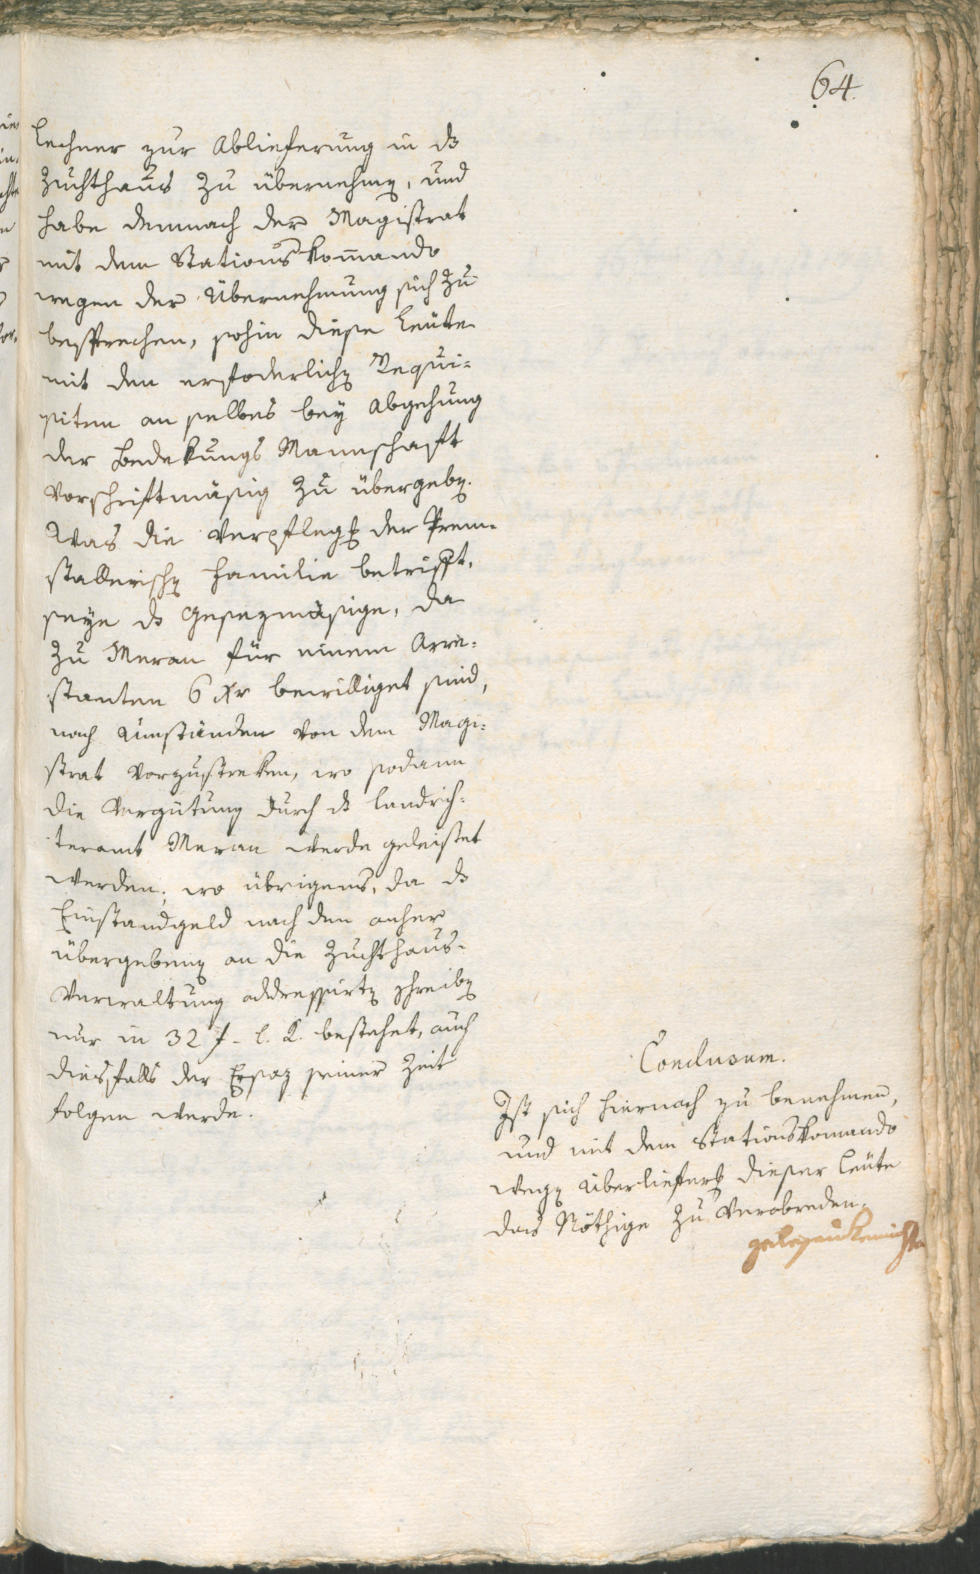 64.
Lechner zur Ablieferung in ds
Zuchthaus zu übernehmen, und
habe demnach der Magistrat
mit dem Stationskom̅ando
wegen der Übernehmung sich zu
besprechen, sohin diese Leüte
mit den erfoderlichen Requi-
siten an selbes bey Abgehung
der Bedekungs Mannschafft
Vorschriftmäsig zu übergeben.
Was die Verpflegung der Prem-
stallerischen Familie betrifft,
seye ds Gesezmäsige, da
zu Meran für einem Arre-
stanten 6 xr bewilliget sind,
nach Umständen von dem Magi-
strat vorzustreken, wo sodann
die Vergütung durch ds Landrich-
teramt Meran werde geleistet
werden; wo übrigens, da ds
Einstandgeld nach den anher
übergebenen an die Zuchthaus-
Verwaltung addressirten Schreiben
nur in 32 f - l. R. bestehet, auch
diesfalls der Ersaz seiner Zeit
folgen werde.
Conclusum.
Ist sich hiernach zu benehmen,
und mit dem Stationskomando
wegen Überlieferung dieser Leüte
das Nöthige zu Verabreden.